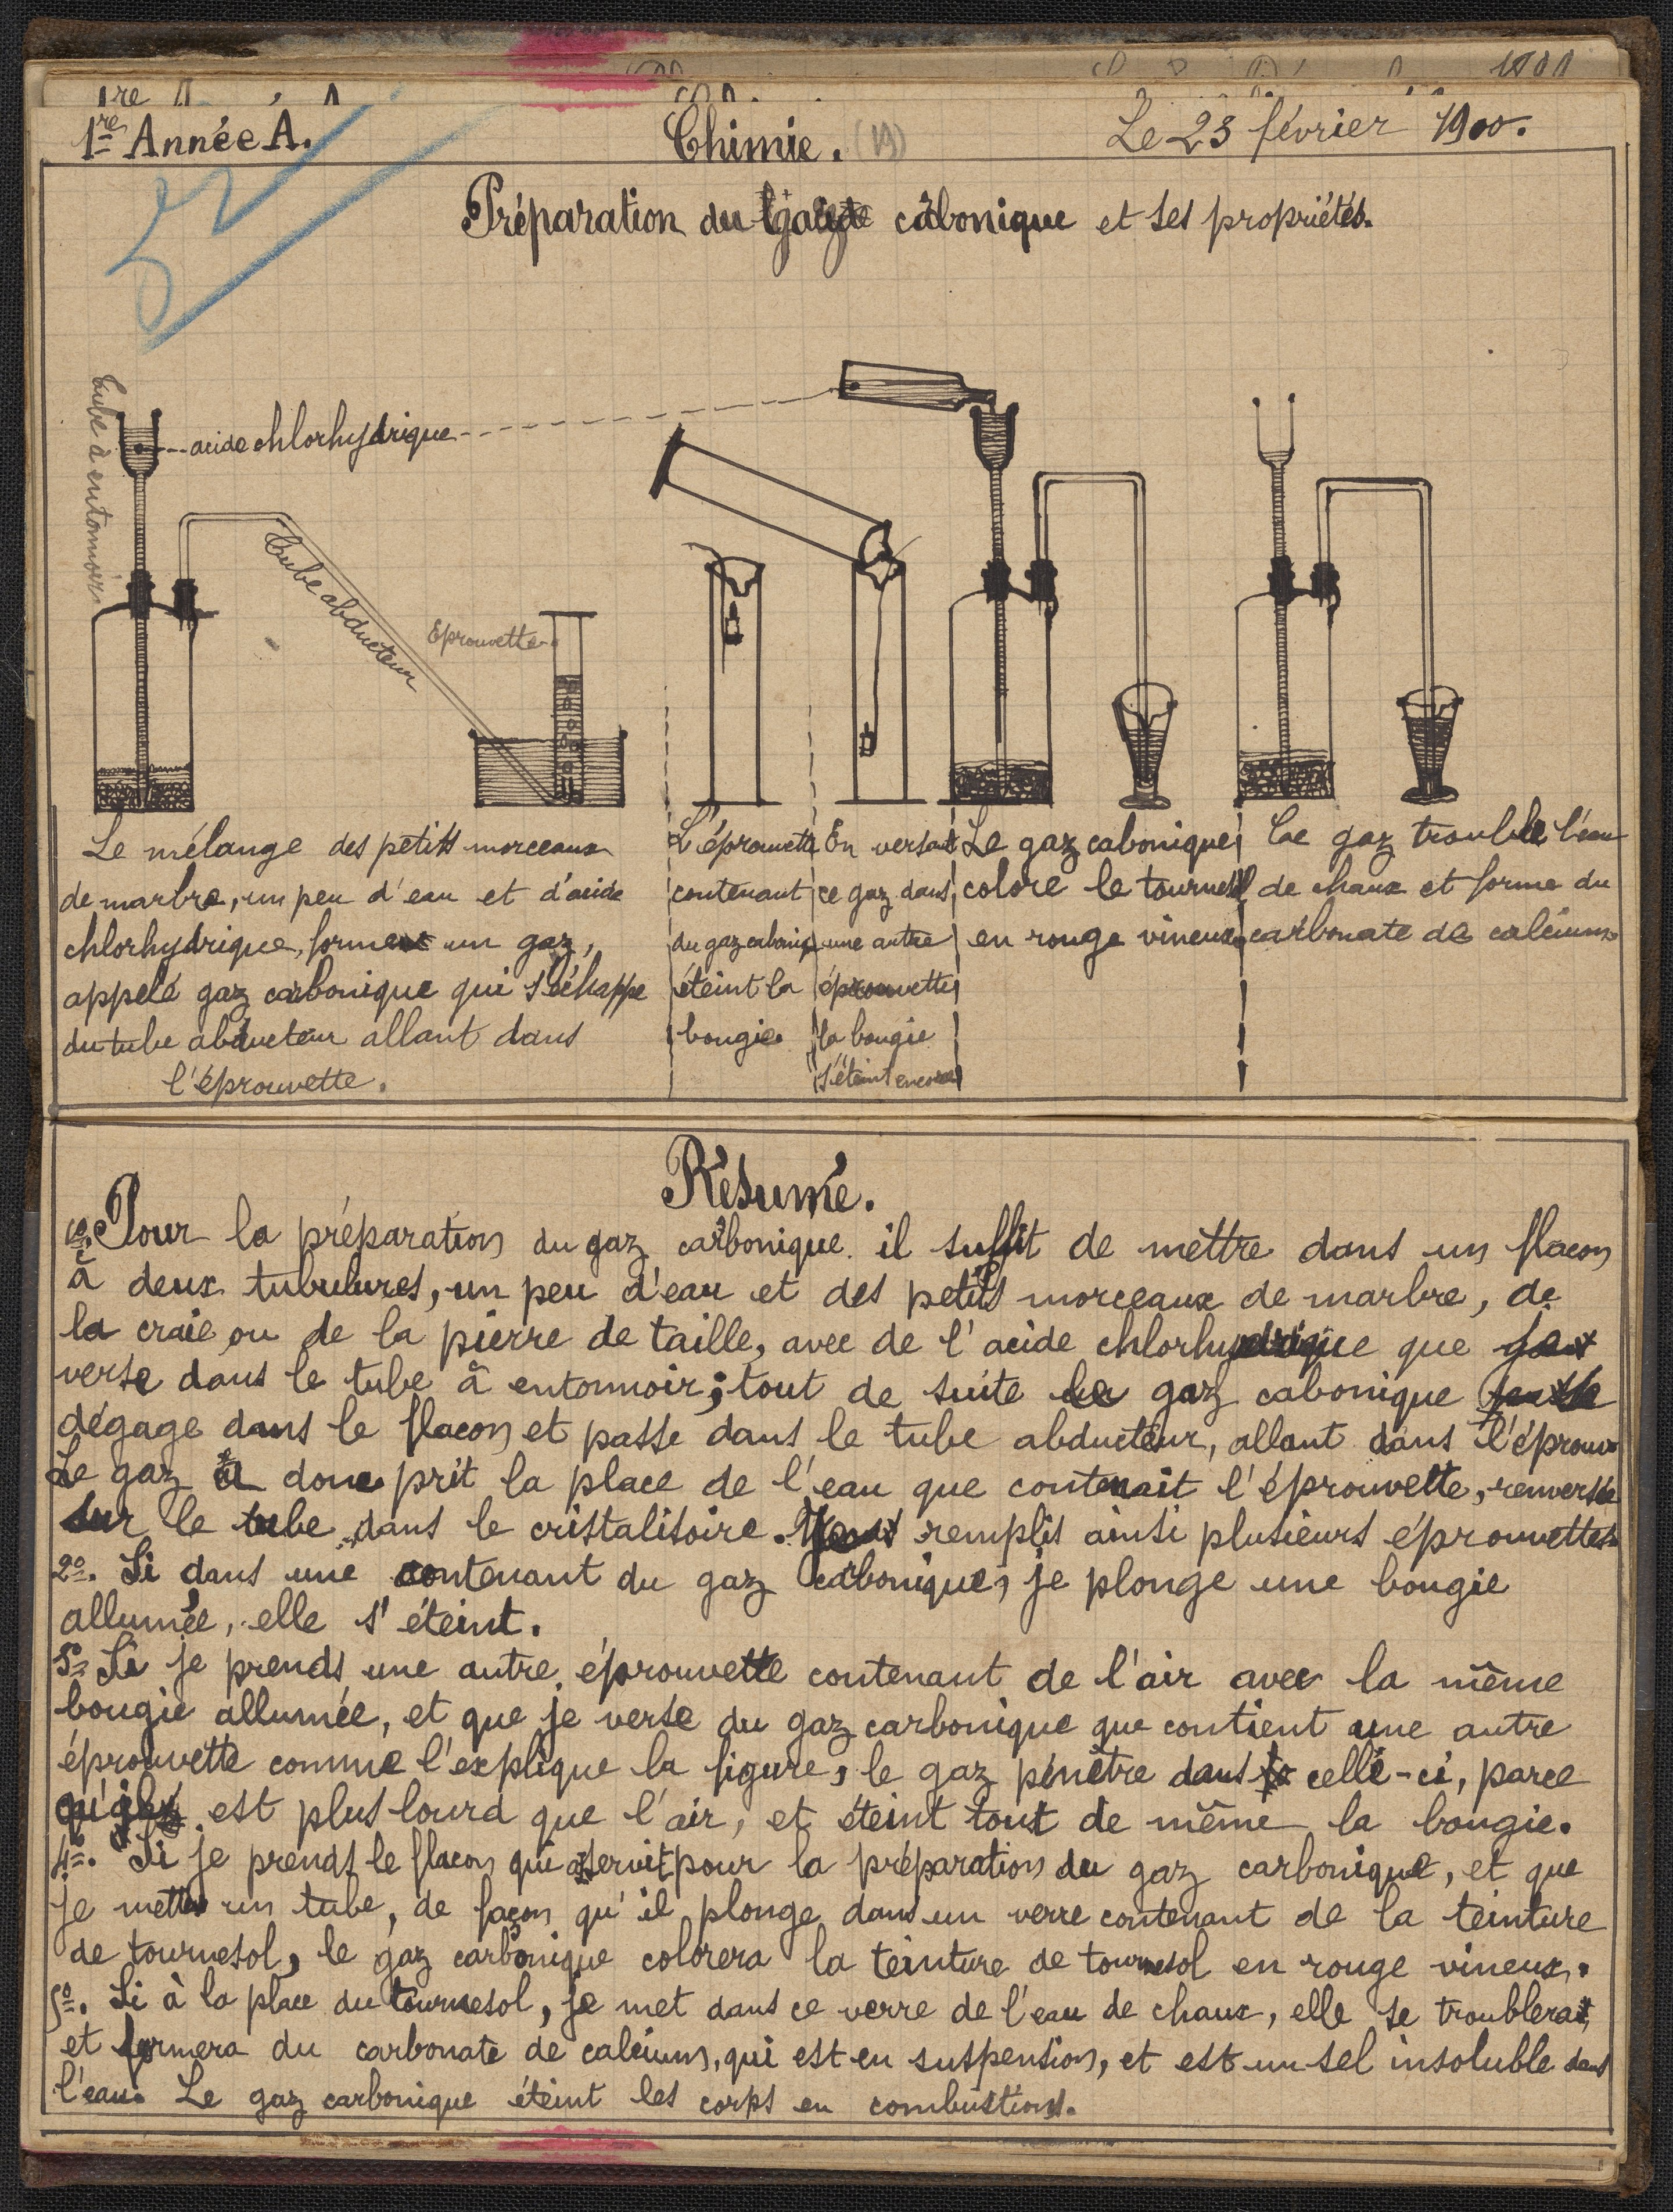 1re Année A.
Chimie. (19)
Le 23 février 1900.
Préparation du gaz cârbonique et ses propriétés.
Tube à entonnoir
acide chlorhydrique
Tube abducteur
Eprouvette
Le mélange des petits morceaux
de marbre, un peu d'eau et d'acide
chlorhydrique, forment un gaz,
appelé gaz carbonique qui s'échappe
du tube abducteur allant dans
l'éprouvette.
L'éprouvette
contenant
du gaz caboniq
éteint la
bougie.
En versant
ce gaz dans
une autre
éprouvette
la bougie
s'éteint encore
Le gaz cabonique
colore le tournesol
en rouge vineux.
Ce gaz trouble l'eau
de chaux et forme du
carbonate de calcium.
Résumé.
1o Pour la préparation du gaz carbonique il suffit de mettre dans un flacon
à deux tubulures, un peu d'eau et des petits morceaux de marbre, de
la craie ou de la pierre de taille, avec de l'acide chlorhydrique que
verse dans le tube à entonnoir; tout de suite le gaz cabonique
dégage dans le flacon et passe dans le tube abducteur, allant dans l'éprouv
Le gaz a donc prit la place de l'eau que contenait l'éprouvette, renversée
sur le tube dans le cristalisoire. remplis ainsi plusieurs éprouvettes.
2o. Si dans une contenant du gaz carbonique, je plonge une bougie
allumée, elle s'éteint.
3o Si je prends une autre éprouvette contenant de l'air avec la même
bougie allumée, et que je verse du gaz carbonique que contient une autre
éprouvette comme l'explique la figure, le gaz pénètre dans celle-ci, parce
qu'il est plus lourd que l'air, et éteint tout de même la bougie.
4o. Si je prends le flacon qui a servit pour la préparation du gaz carbonique, et que
je mette un tube, de façon qu'il plonge dans un verre contenant de la teinture
de tournesol, le gaz carbonique colorera la teinture de tournesol en rouge vineux.
5o. Si à la place du tournesol, je met dans ce verre de l'eau de chaux, elle se troublera
et formera du carbonate de calcium, qui est en suspension, et est un sel insoluble dans
l'eau. Le gaz carbonique éteint les corps en combustions.